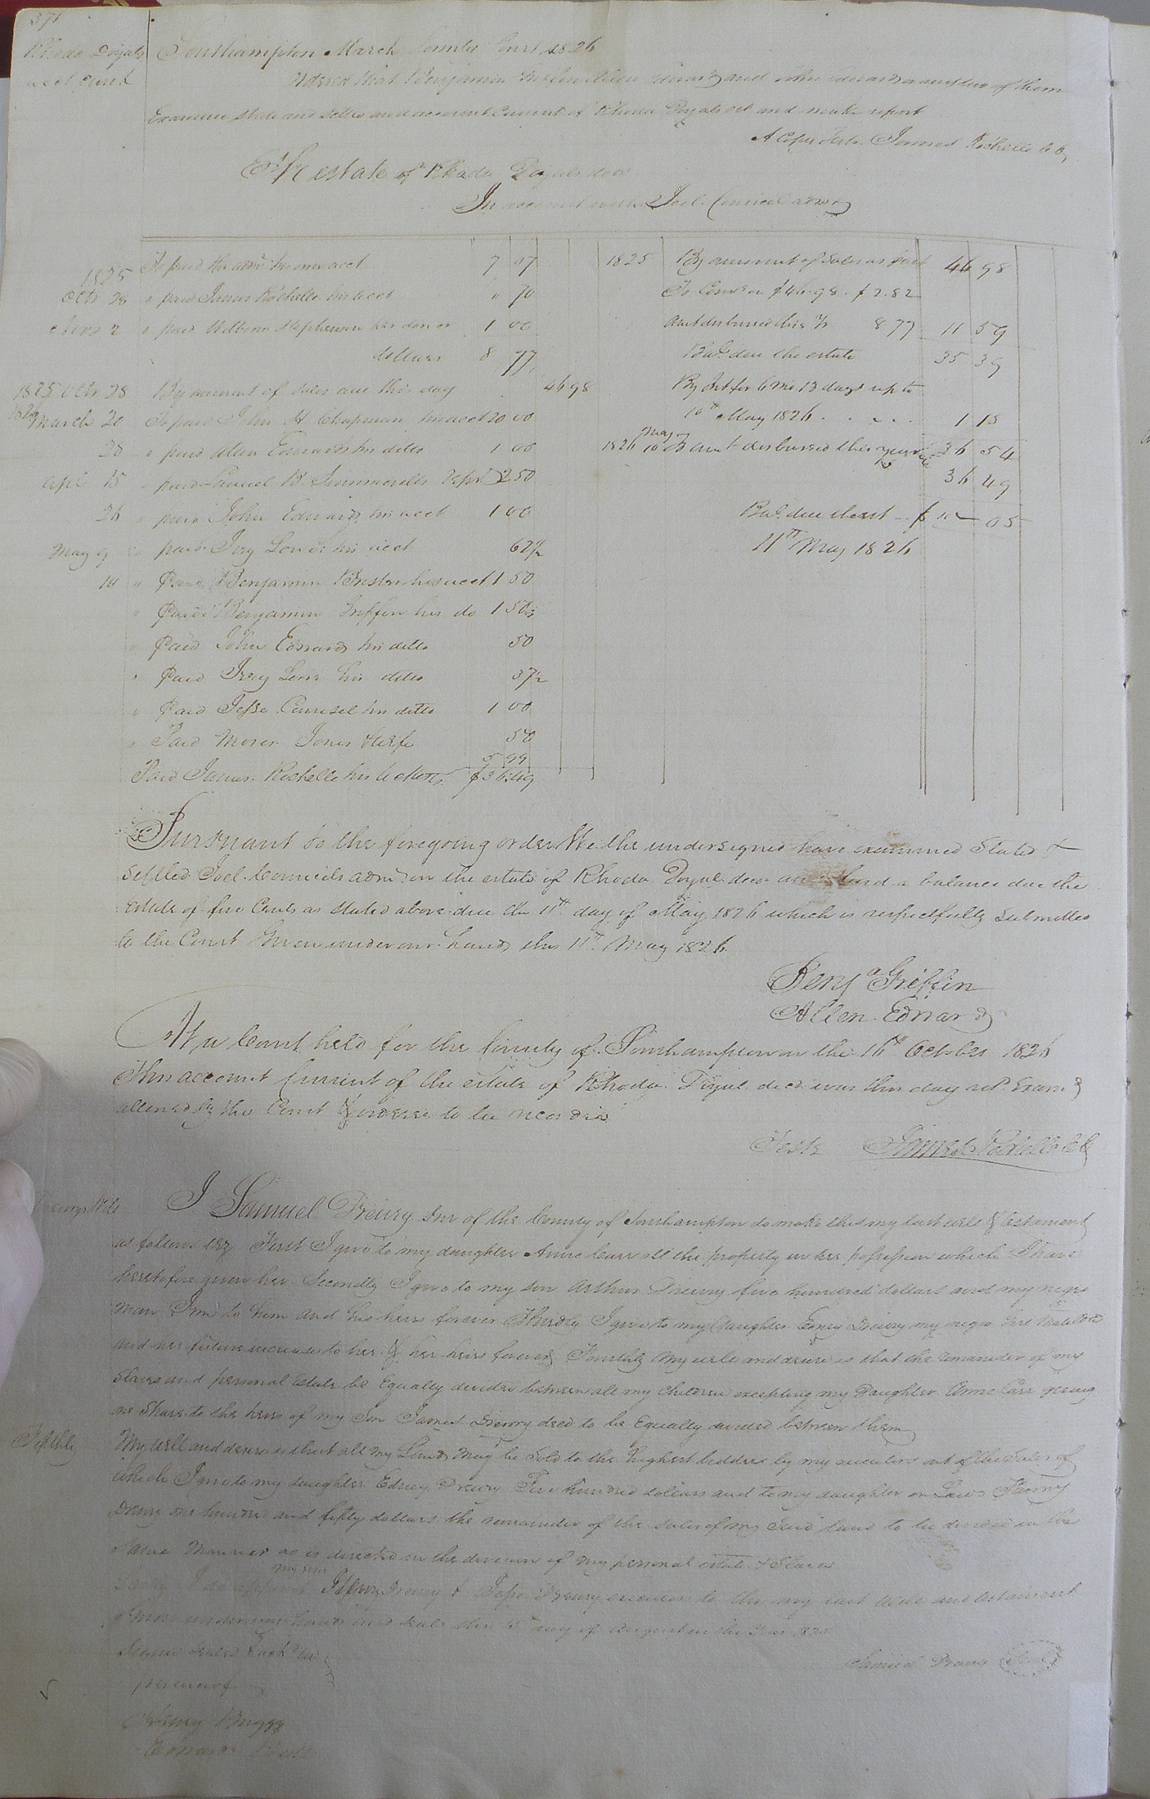 371
Rhoda Doyals
acct Current
Southampton March County Court 1826
Ordered that Benjamin Griffin Allen Edwards and John Edwards any two of them
Examine state and settle and account Current of Rhoda Doyals est and make report
A Copy Teste James Rochelle C C
Dr The estate of Rhoda Doyals decd
In account with Joel Council admr
1825 To paid the admr his own acct 7 07
Octr 28 " paid James Rochelle his acct " 70
Novr 2 " paid William Stephenson his do 1 00
dollars 8 77
1825 Octr 28 By amount of sales due this day 46 98
1826 March 20 To paid John H Chapman his acct 20 00
28 " paid Allen Edwards his ditto 1 00
Apl 15 " paid Samuel B 2 50
26 " paid John Edwards his acct 1 00
May 9 " paid his acct 62 1/2
10 " Paid Benjamin his acct 1 50
" Paid Benjamin Griffin his do 1 50
" Paid John Edwards his ditto 50
" Paid his ditto 37 1/2
" Paid Jesse Council his ditto 1 00
" Paid Jones 50
Paid James Rochelle his tickets 5 99
$36.49
1825 By amount of Sales as per 46 98
To Comn on $46.98 $2.82
Amt disbursed this yr 8 77 11 59
Bal. due the estate 35 39
By Int for 6 mo 13 days up to
10th May 1826 1 15
1826 May 10 By amt disbursed this year 36 54
36 49
Bal. due the est $ " 05
11th May 1826
Pursuant to the foregoing order We the undersigned have examined Stated &
Settled Joel Councils admr on the estate of Rhoda Doyal decd and find a balance due the
estate of five Cents as stated above due the 11th day of May 1826 which is respectfully submitted
to the Court Given under our hands this 11th May 1826
Benja Griffin
Allen Edwards
At a Court held for the County of Southampton on the 16th October 1826
This account Current of the estate of Rhoda Doyal decd was this day ret Exam &
allowed by the Court & ordered to be recorded
Teste James Rochelle C C
Drewrys Will
I Samuel Drewry Snr of the County of Southampton do make this my last will & testament
as follows Viz First I give to my daughter Anne Carr all the property in her possession which I have
heretofore given her Secondly I give to my son Arthur Drewry five hundred dollars and my negro
man Jim to him and his heirs forever Thirdly I give to my daughter Edney Drewry my negro Girl
and her future increase to her & her heirs forever Fourthly My will and desire is that the remainder of my
Slaves and personal Estate be Equally divided between all my Children excepting my Daughter Anne Carr giving
one Share to the heirs of my Son James Drewry decd to be Equally divided between them
Fifthly My will and desire is that all my Land may be sold to the highest bidder by my executors out of the Sales of
which I give to my daughter Edney Drewry Five hundred dollars and to my daughter in Law
Drewry one hundred and fifty dollars the remainder of the sales of my said land to be divided in the
Same Manner as is directed in the division of my personal estate & Slaves
Lastly I do appoint my sons Drewry & Drewry executors to this my last Will and testament
hand and Seal this 15th day of August in the Year
Signed Sealed & ack in
presence of
Samuel Drewry Seal
Henry Briggs